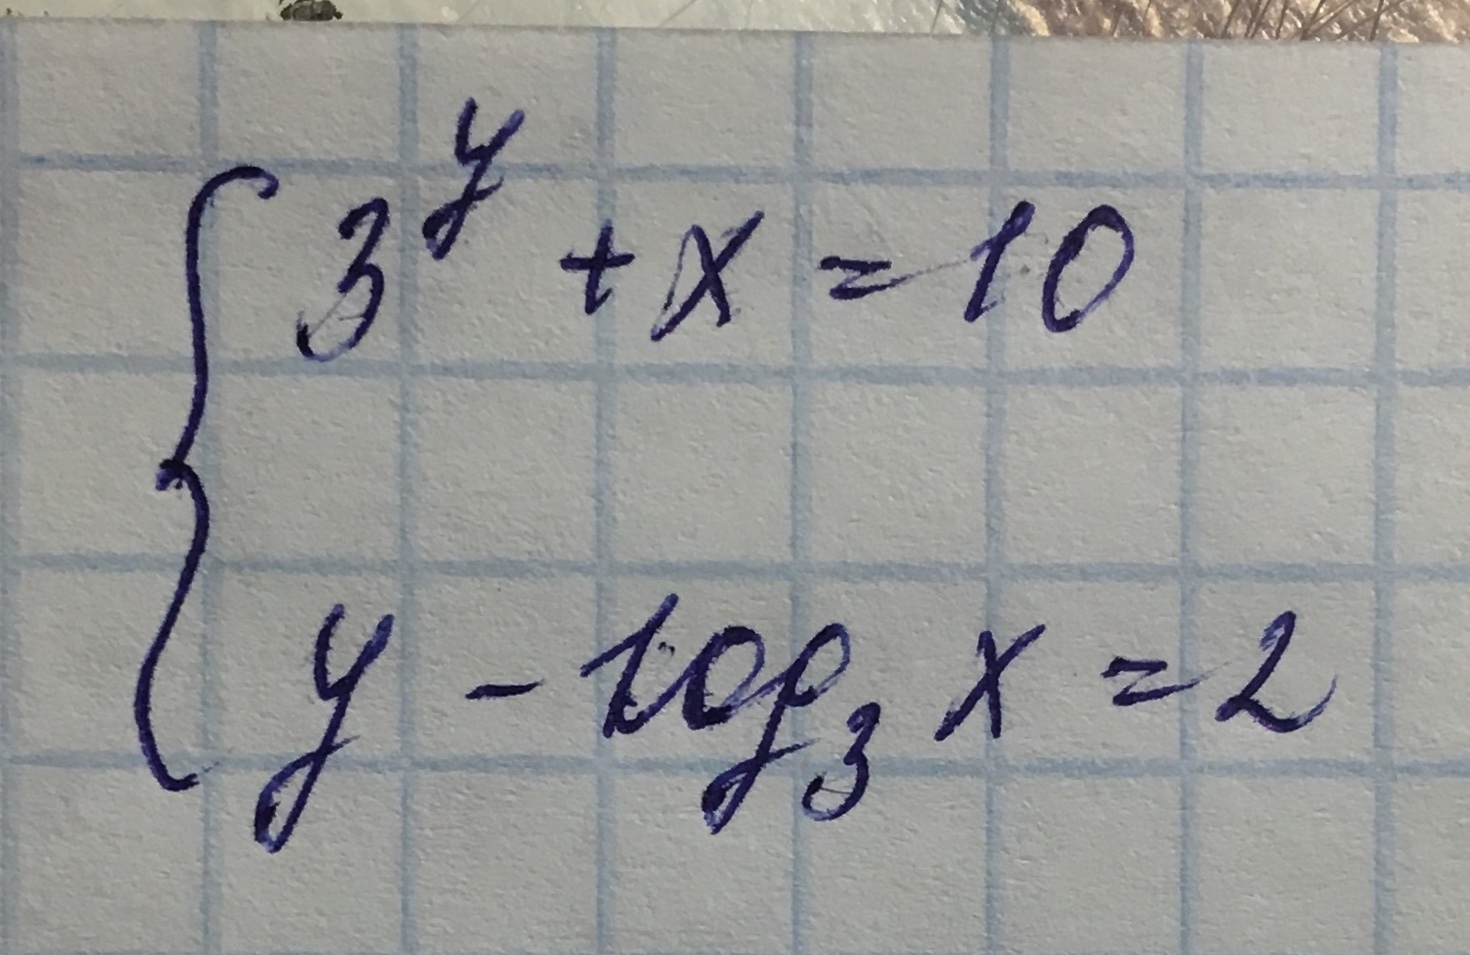 3^y + x = 10
y - log₃ x = 2